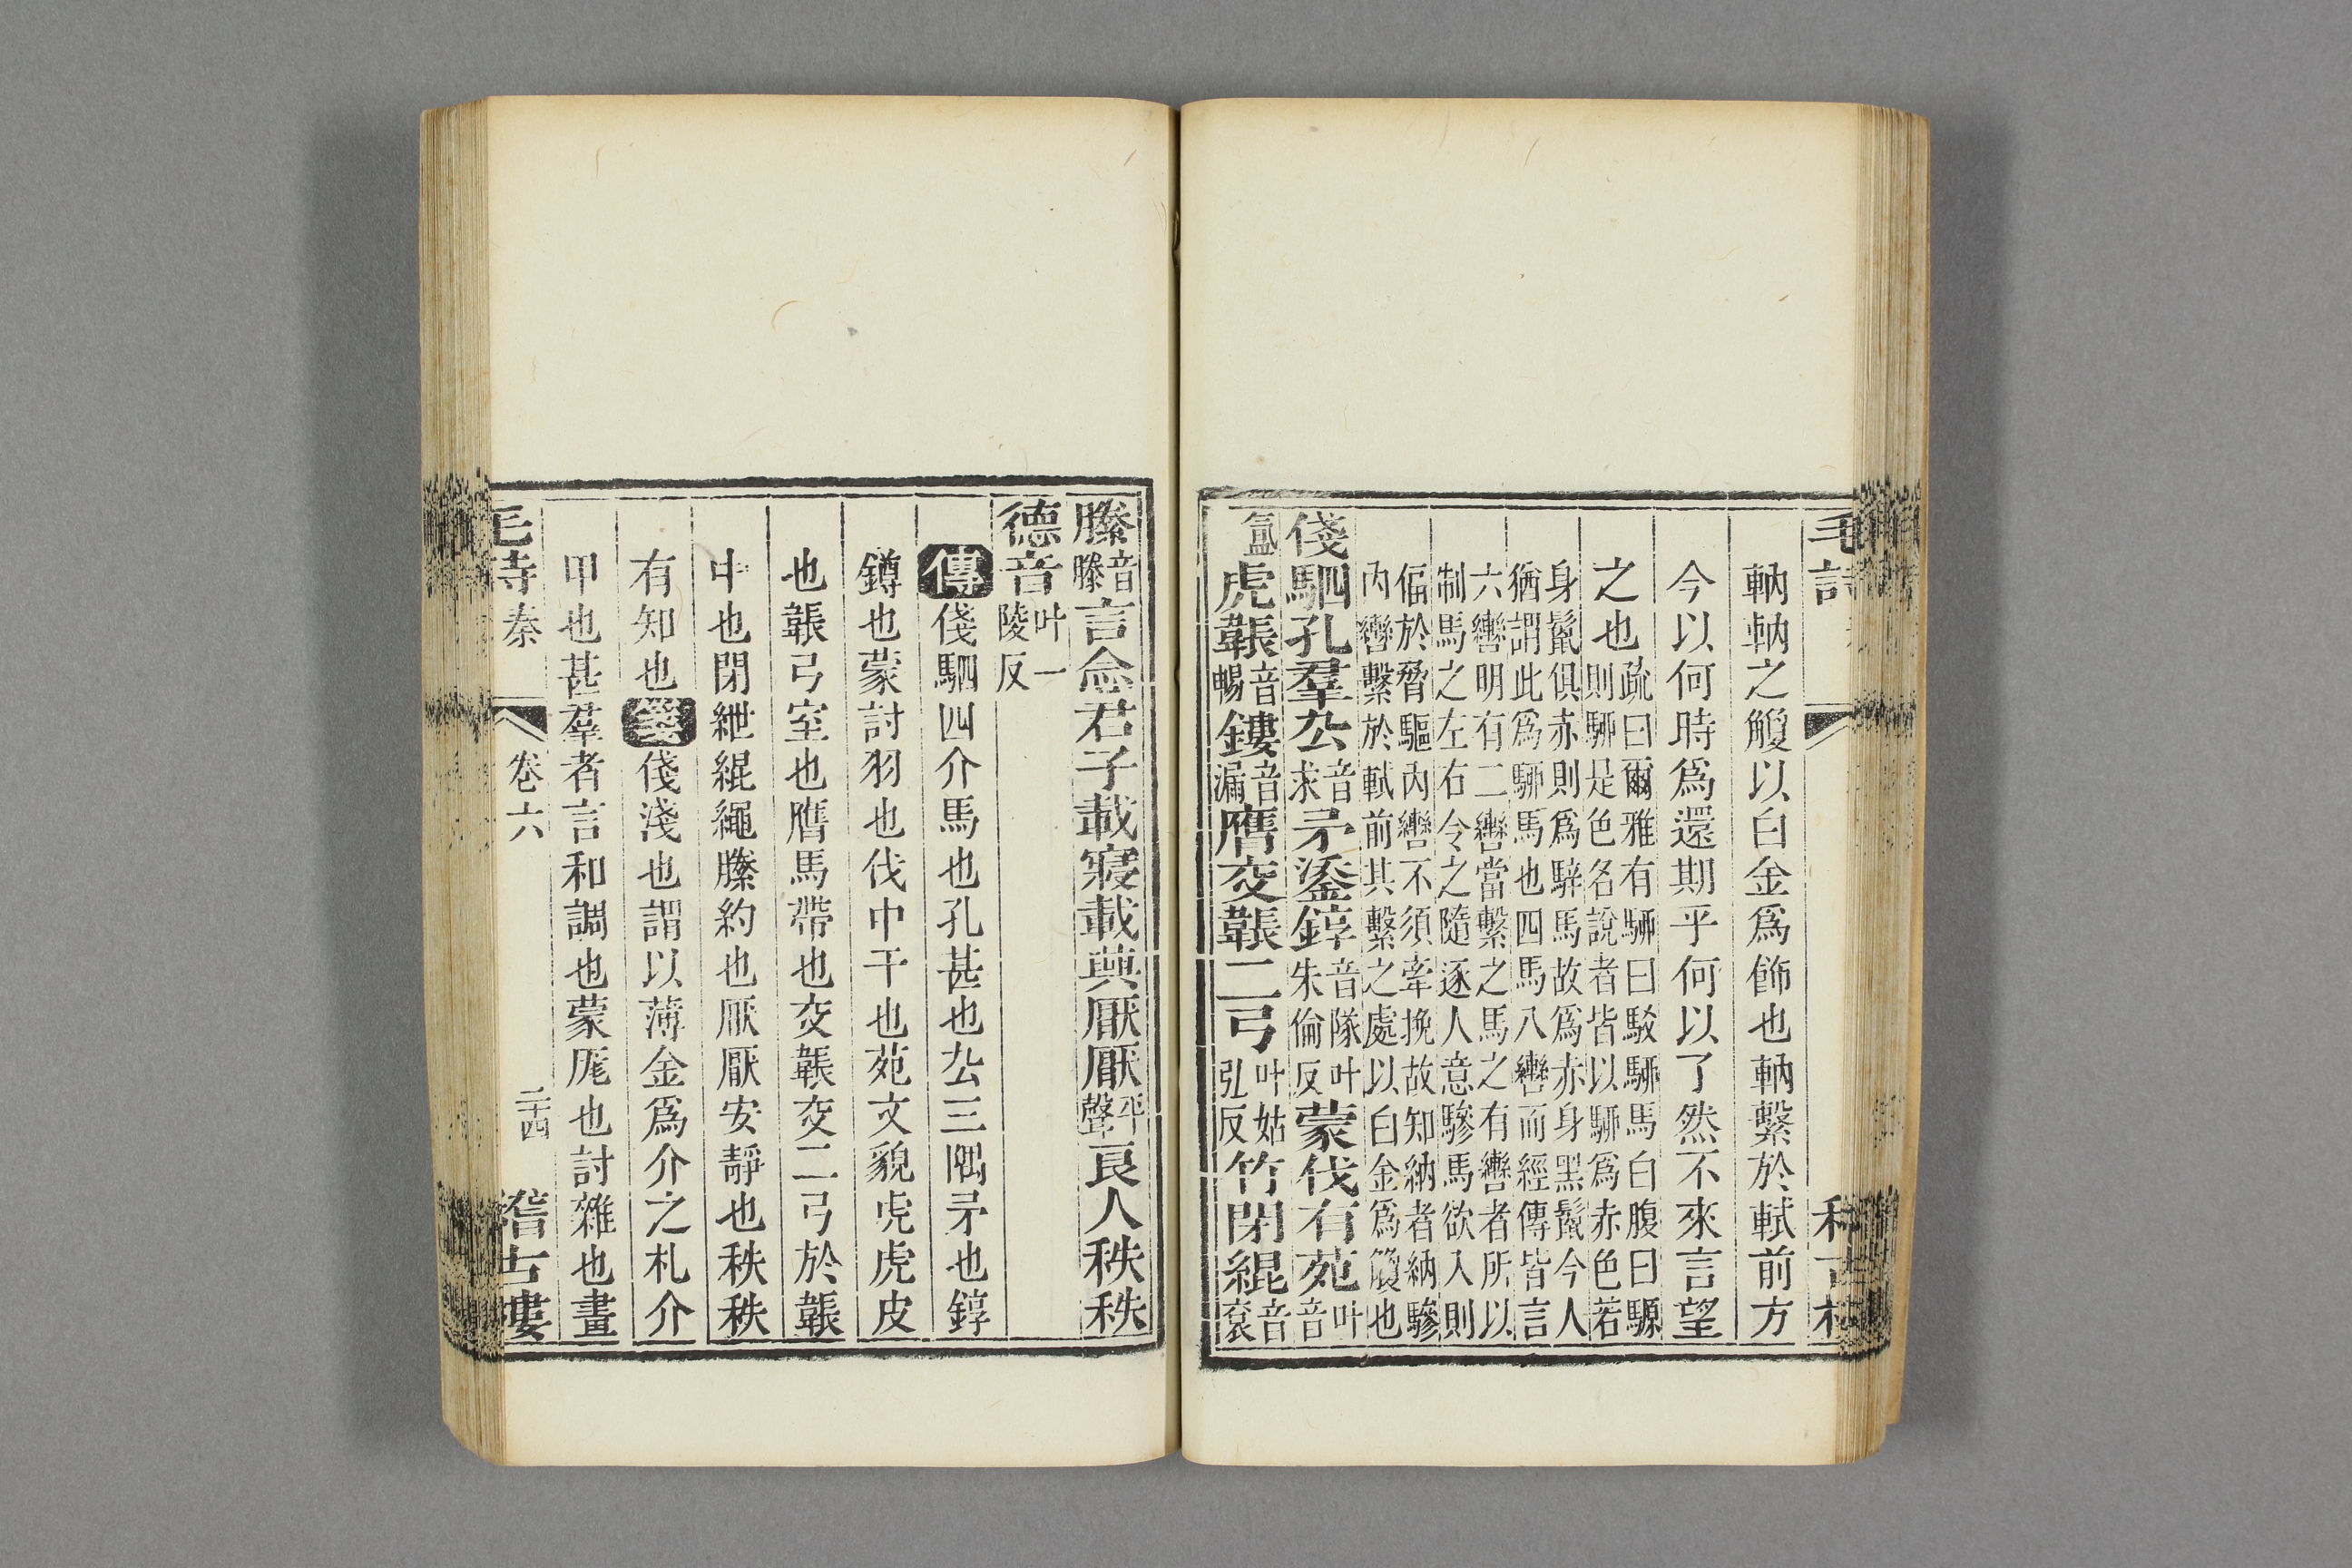 毛詩
軜軜之觼以白金爲飾也軜繫於軾前方
今以何時爲還期乎何以了然不來言望
之也疏曰爾雅有駵曰駁駵馬白腹曰騵
則駵是色名說者皆以駵爲赤色若
身鬣俱赤則爲騂馬故爲赤身黑鬣今人
猶謂此爲駵馬也四馬八轡而經傳皆言
六轡明有二轡當繫之馬之有轡者所以
制馬之左右令之隨逐人意驂馬欲入則
偪於脅驅內轡不須牽挽故知納者納驂
內轡繫於軾前其繫之處以白金爲觼也
俴駟孔羣厹音求矛鋈錞音隊叶朱倫反蒙伐有苑叶音
氲虎韔音暢鏤音漏膺交韔二弓叶姑弘反竹閉緄音衮
縢音滕言念君子載寢載興厭厭平聲良人秩秩
德音叶一陵反
傳俴駟四介馬也孔甚也厹三隅矛也錞
鐏也蒙討羽也伐中干也苑文貌虎虎皮
也韔弓室也膺馬帶也交韔交二弓於韔
中也閉紲緄繩縢約也厭厭安靜也秩秩
有知也箋俴淺也謂以薄金爲介之札介
甲也甚羣者言和調也蒙厖也討雜也畫
毛詩秦 卷六 二十四 稽古樓